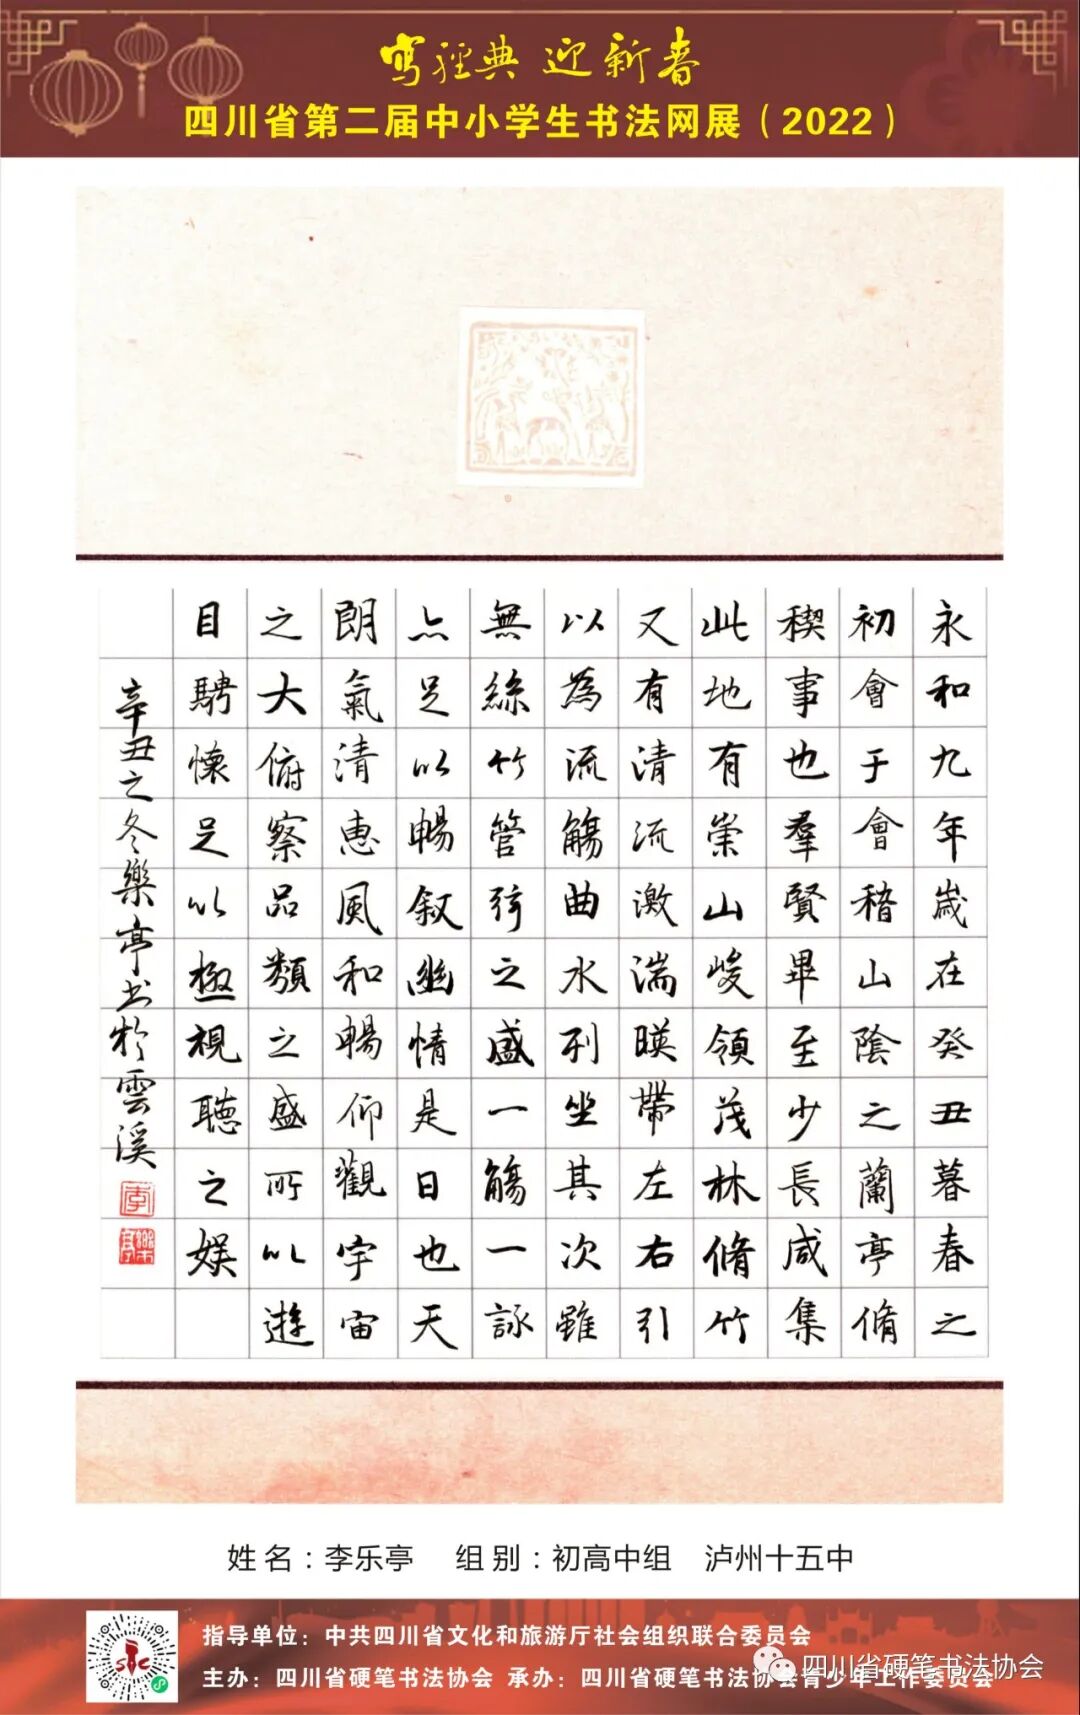 寫經典 迎新春
四川省第二届中小学生书法网展（2022）
永和九年歲在癸丑暮春之
初會于會稽山陰之蘭亭脩
稧事也羣賢畢至少長咸集
此地有崇山峻領茂林脩竹
又有清流激湍暎帶左右引
以為流觴曲水列坐其次雖
無絲竹管弦之盛一觴一詠
亦足以暢叙幽情是日也天
朗氣清惠風和暢仰觀宇宙
之大俯察品類之盛所以遊
目騁懷足以極視聽之娛
辛丑之冬樂亭书於雲溪
李
樂亭
姓名：李乐亭 组别：初高中组 泸州十五中
指导单位：中共四川省文化和旅游厅社会组织联合委员会
主办：四川省硬笔书法协会 承办：四川省硬笔书法协会青少年工作委员会
四川省硬笔书法协会